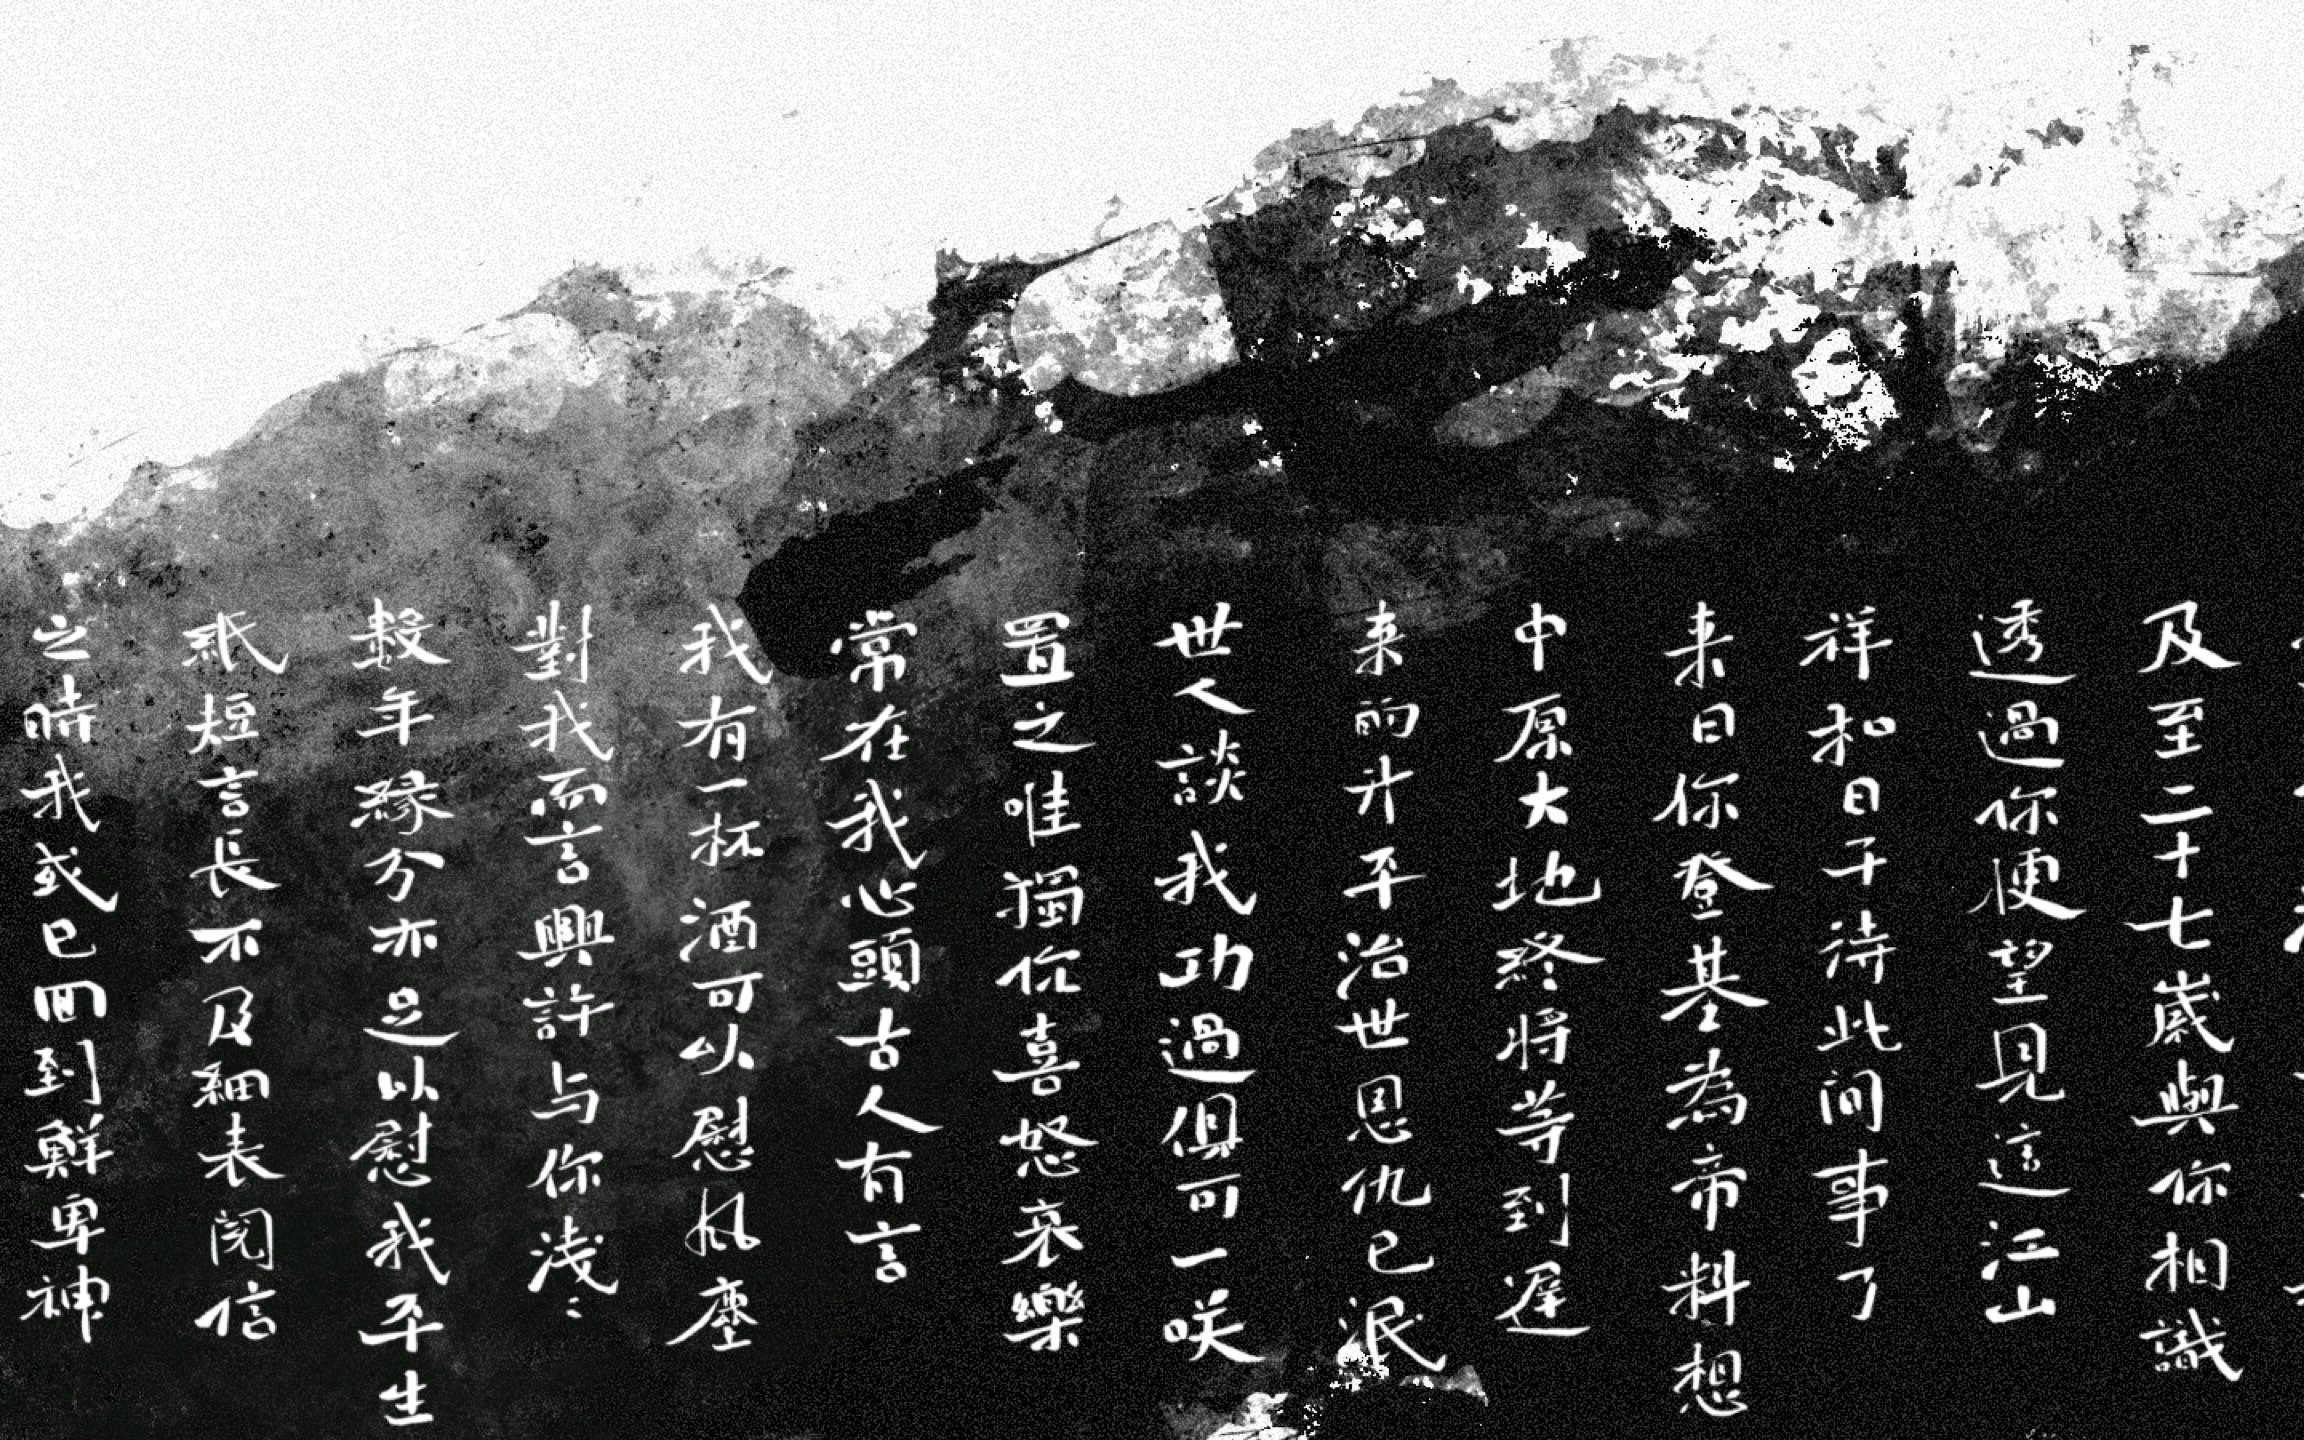 及至二十七歲與你相識
透過你便望見這江山
祥和日子待此間事了
来日你登基為帝料想
中原大地終將等到遲
来的升平治世恩仇已泯
世人談我功過俱可一咲
置之唯獨你喜怒哀樂
常在我心頭古人有言
我有一杯酒可以慰風塵
對我而言興許与你淺〻
数年緣分亦足以慰我平生
紙短言長不及細表閱信
之時我或已回到鮮卑神